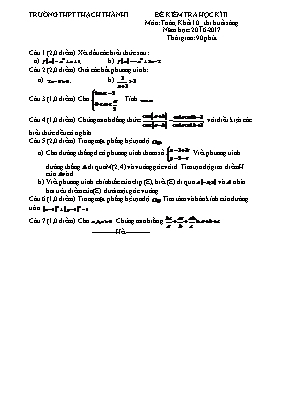 TRƯỜNG THPT THẠCH THÀNH I ĐỀ KIỂM TRA HỌC KÌ II
Môn: Toán, Khối 10, thi buổi sáng
Năm học: 2016-2017
Thời gian: 90 phút
Câu 1 (2,0 điểm). Xét dấu các biểu thức sau:
a) b)
Câu 2 (2,0 điểm). Giải các bất phương trình:
a) b)
Câu 3 (1,0 điểm). Cho Tính
Câu 4 (1,0 điểm). Chứng minh đẳng thức: với điều kiện các
biểu thức đều có nghĩa.
Câu 5 (2,0 điểm). Trong mặt phẳng hệ tọa độ
a) Cho đường thẳng d có phương trình tham số Viết phương trình
đường thẳng đi qua M(2;4) và vuông góc với d. Tìm tọa độ giao điểm H
của và d.
b) Viết phương trình chính tắc của elip (E), biết (E) đi qua và nhìn
hai tiêu điểm của (E) dưới một góc vuông.
Câu 6 (1,0 điểm). Trong mặt phẳng hệ tọa độ Tìm tâm và bán kính của đường
tròn
Câu 7 (1,0 điểm). Cho Chứng minh rằng
Hết